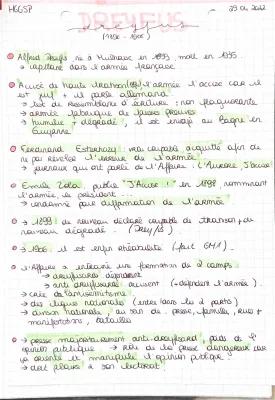 HGGSP
DREYFUS
(1894 - 1906)
Alfred Dreyfus, né à Mulhouse en 1859, mort en 1935
→ capitaine dans l'armée française
Accusé de haute trahison par l'armée l'accuse car il
est juif + il parle allemand
→ test de ressemblance d'écriture : non
→ armée fabrique de fausses preuves
→ humilié + dégradé, il est envoyé au bagne en
Guyane
Ferdinand Esterhazy : non coupable acquitté afin de
ne pas révéler l'erreur de l'armée
→ journaux qui ont parlé de l'Affaire : l'Aurore, J'accuse !
Emile Zola publie "J'Accuse !" en 1898 nommant
l'armée, le président...
→ condamné pour diffamation de l'armée
→ 1899 : de nouveau déclaré coupable de trahison + de
nouveau dégradé.
→ 1906 : il est enfin réhabilité
l'Affaire a entraîné une formation de 2 camps
→ dreyfusards défendent
→ anti dreyfusards accusent (+ défendent l'armée).
→ crée de l'antisémitisme
→ des ligues nationales (entre dans les 2 partis)
→ division nationale, au sein de presse, familles, rues +
manifestations, batailles
→ presse majoritairement anti-dreyfusard, poids de l'
opinion publique → rôle de la presse dangereux car
a orienté et manipulé l'opinion publique
→ doit plaire à son lectorat